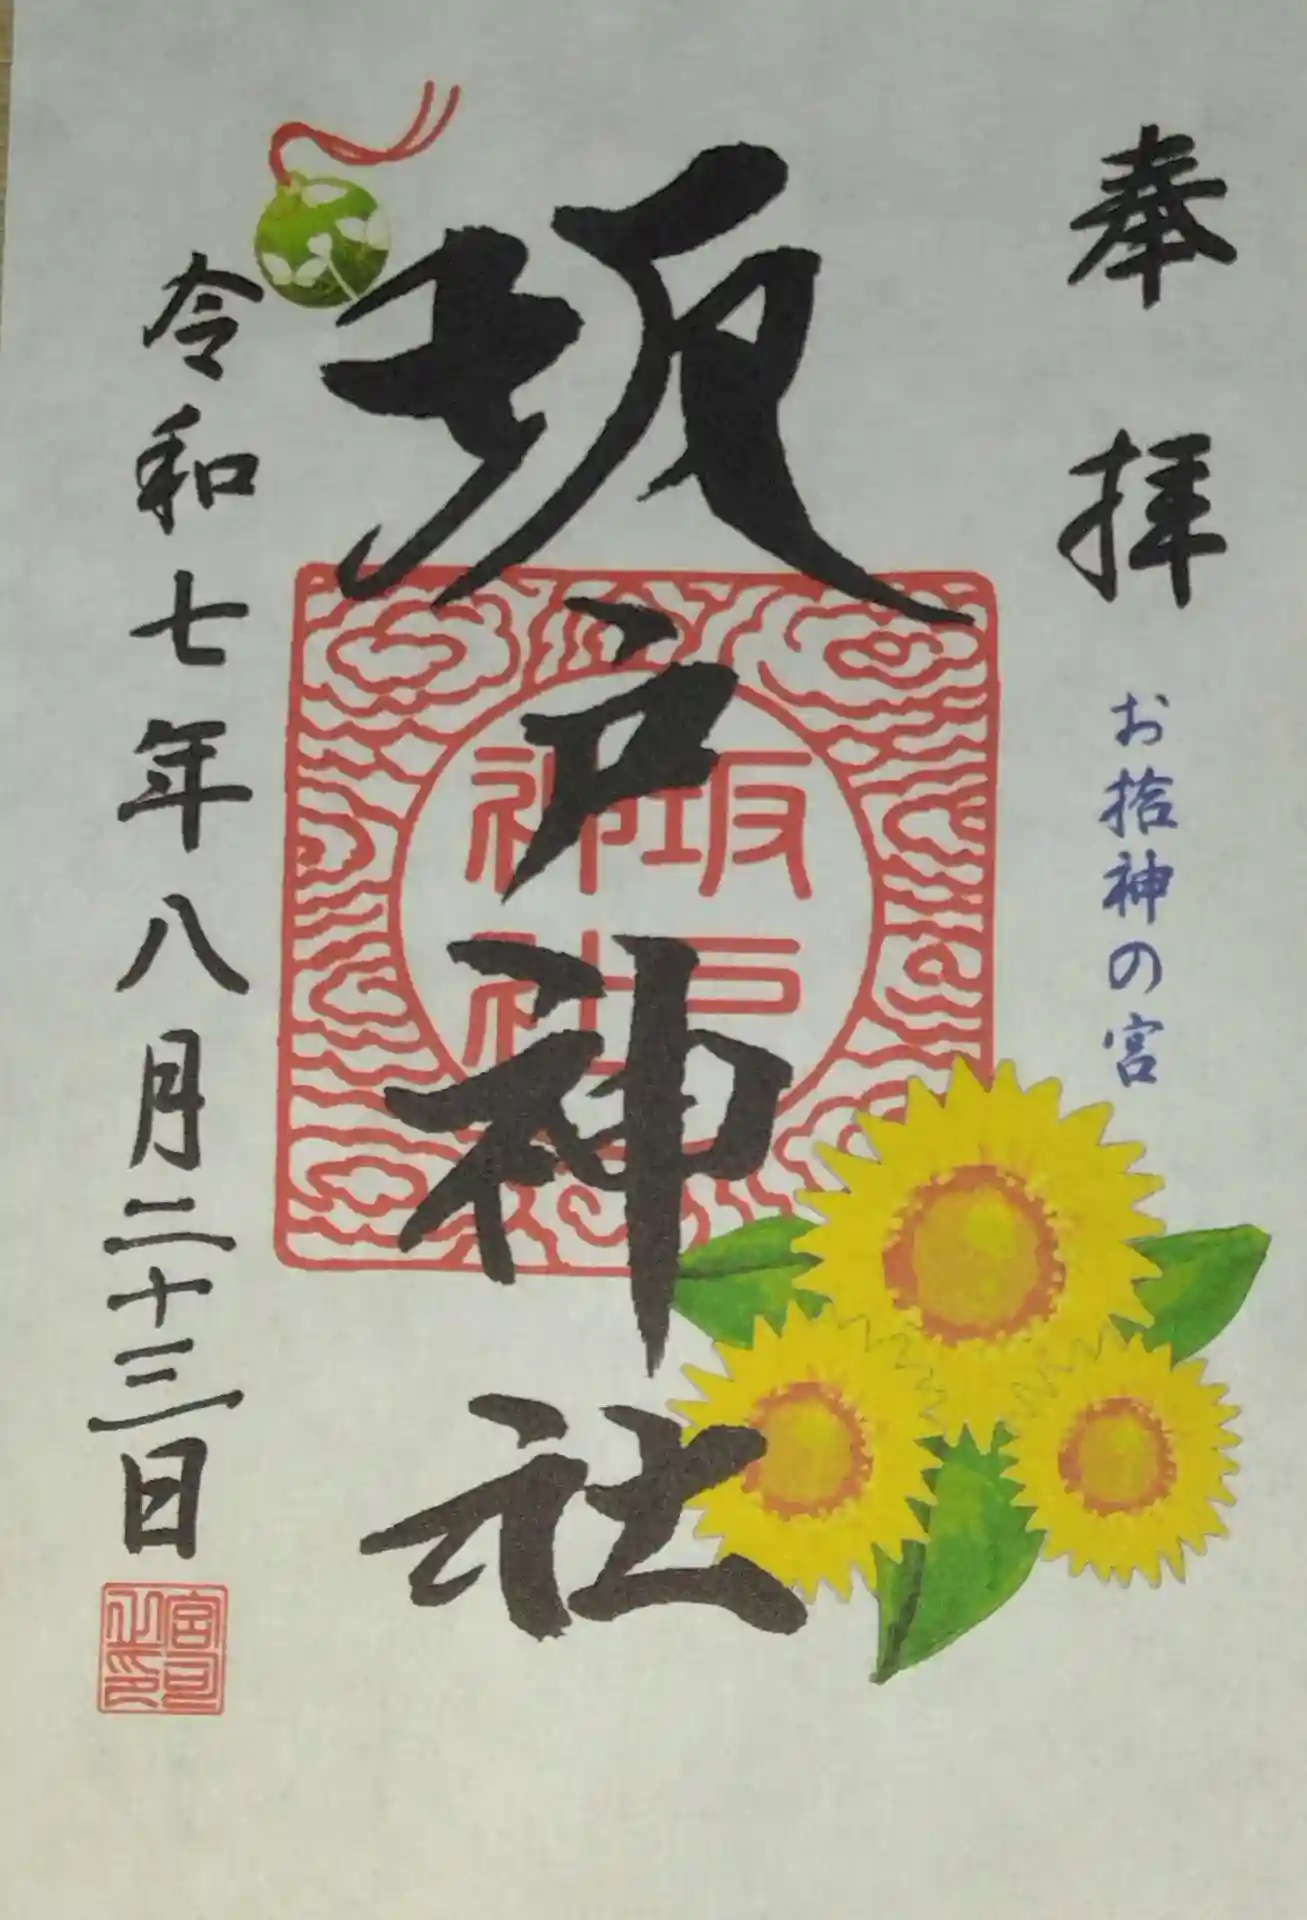 奉拝
お拾神の宮
坂戸神社
坂戸
神社
令和七年八月二十三日
宮司
之印